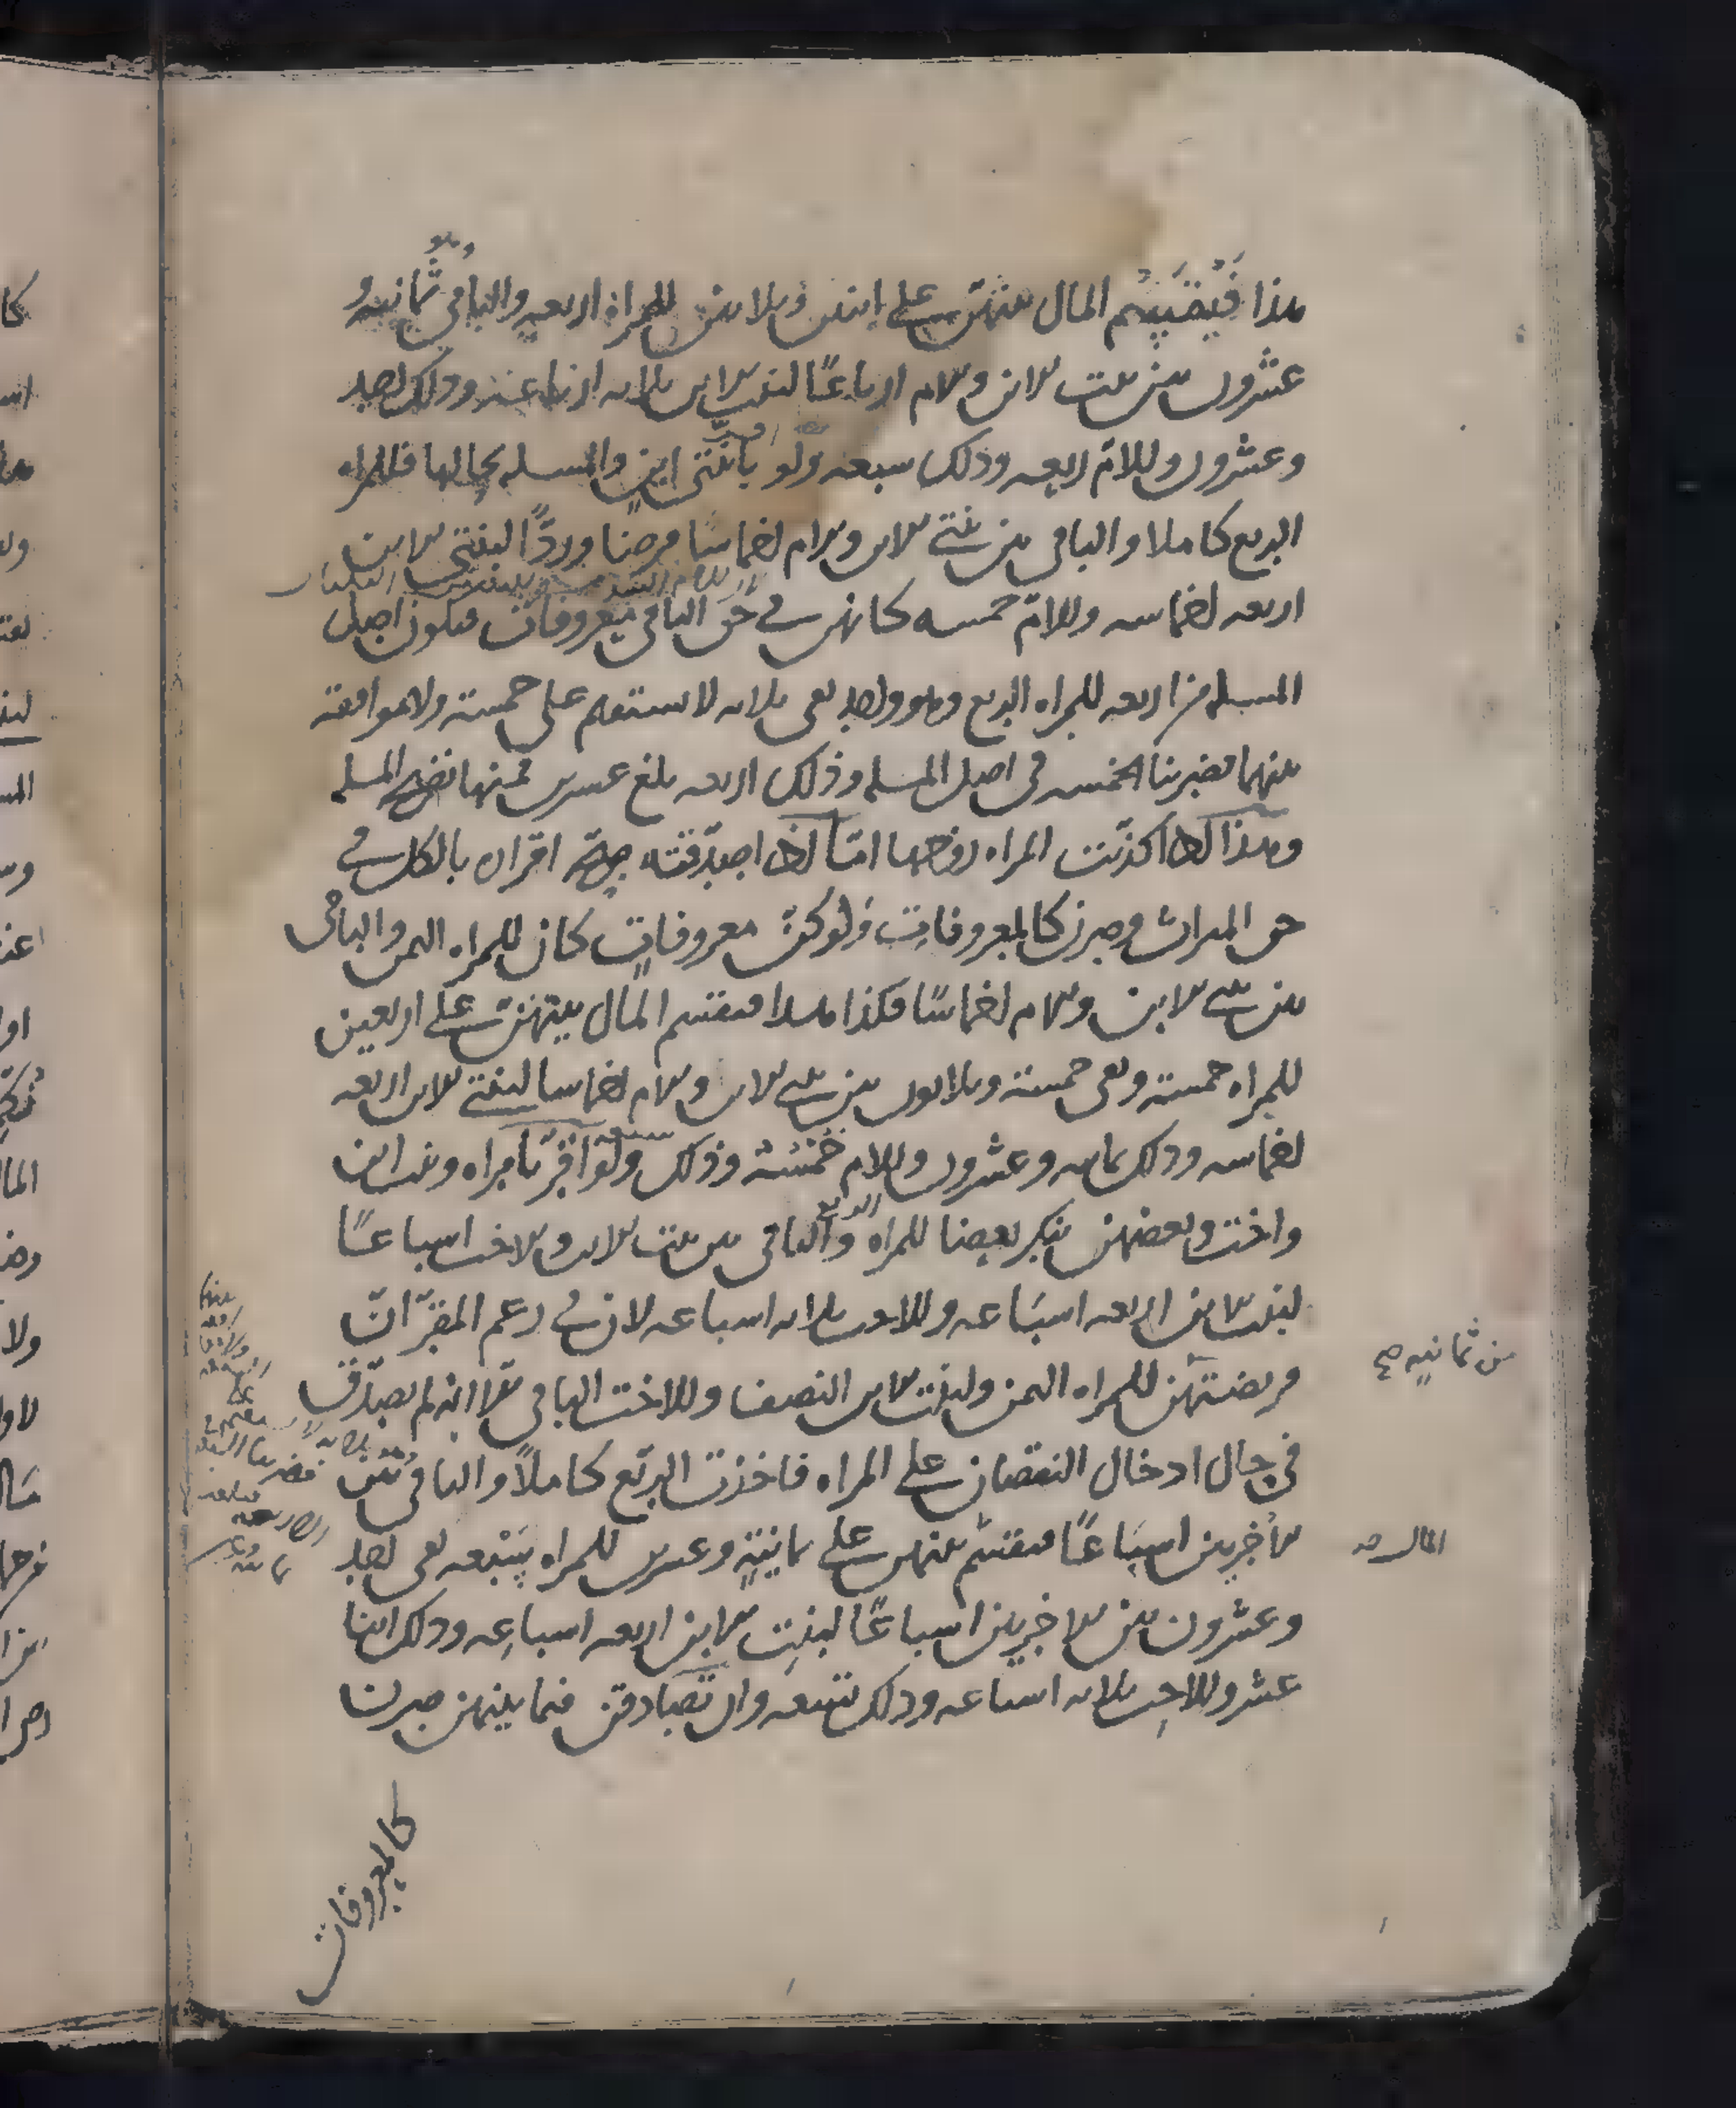 هذا فيقسم المال بينهن على اثنين وثلاثين للمراة اربعة والباقى ثمانية و
عشرون بين بنت الابن والام ارباعًا لبنت الابن ثلاثة ارباعه وذلك احد
وعشرون وللام ربعه وذلك سبعة ولو بابنتى ابن والمسله بحالها فللمراه
الربع كاملا والباقى بين بنتى الابن والام اخماسًا فرضا وردًّا لبنتى الابن
اربعه اخماسه وللامّ خمسه كانهن فى حق الباقى معروفات فيكون اصل
المسله من اربعه للمراه الربع وهو واحد بقى ثلاثه لا يستقيم على خمسة ولا موافقة
بينهما فضربنا الخمسه فى اصل المسله وذلك اربعه بلغ عشرين فمنها تصح المسله
وهذا اذا كذّبت المراه امّا اذا صدّقته صحّ اقراره بالكل فى
حق الميراث وصرن كالمعروفات ولو كنّ معروفاتٍ كان للمراه الثمن والباقى
بين بنتى الابن والام اخماسًا فكذا هذا فيقسم المال بينهن على اربعين
للمراه خمسة وبقى خمسة وثلاثون بين بنتى الابن والام اخماسا لبنتى الابن اربعه
اخماسه وذلك ثمانيه وعشرون وللام خمسه وذلك سبعة ولو اقر بامراه وبنت ابن
واخت وبعضهن ينكر بعضا للمراه الربع والباقى بين بنت الابن والاخت اسباعًا
لبنت الابن اربعه اسباعه وللاخت ثلاثه اسباعه لان فى زعم المقرّ انّ
فريضتهن للمراه الثمن ولبنت الابن النصف وللاخت الباقى الا انه لم يصدّق
فى حال ادخال النقصان على المراه فاخذت الربع كاملاً والباقى بين
الاخريين اسباعًا فيقسم بينهن على ثمانيةٍ وعشرين للمراه سبعه بقى احد
وعشرون بين الاخريين اسباعًا لبنتِ الابن اربعه اسباعِه وذلك اثنا
عشر وللاخت ثلاثه اسباعه وذلك تسعه وان تصادقن فيما بينهن صرن
كالمعروفات
من ثمانيه صح
المال صح